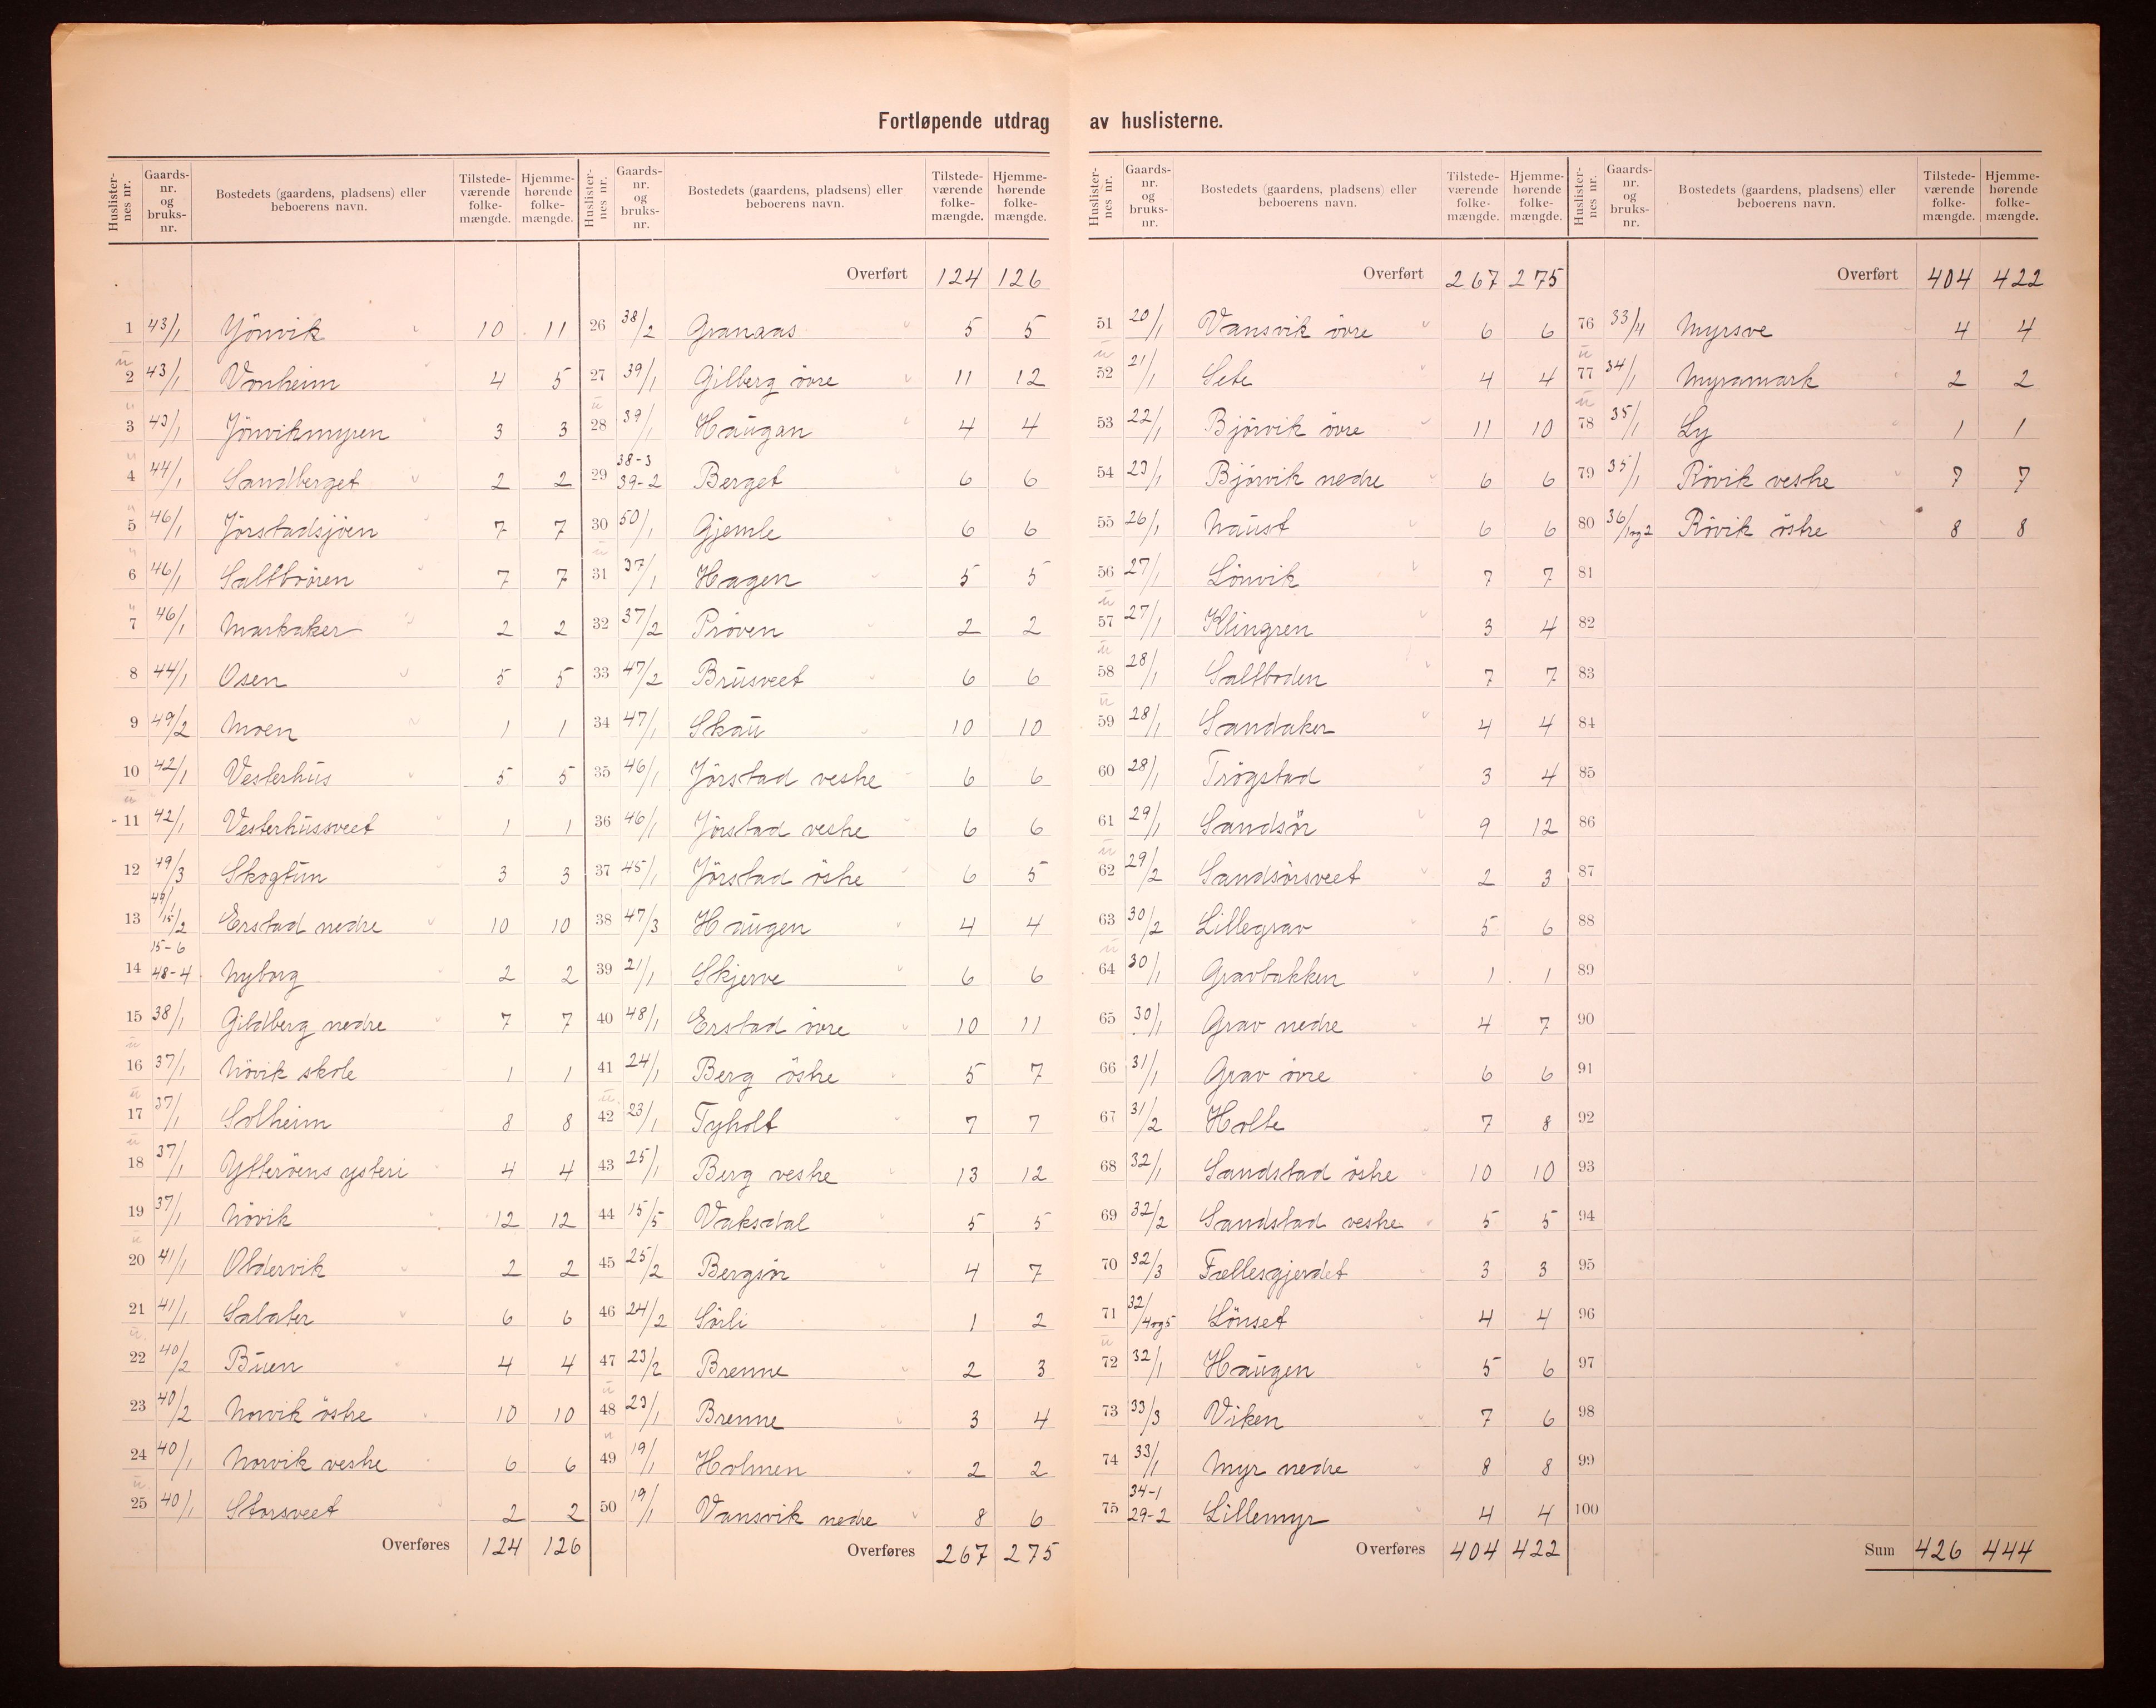 Fortløpende utdrag av huslisterne.
Huslisternes nr. Gaards-nr. og bruks-nr. Bostedets (gaardens, pladsens) eller beboerens navn. Tilstedeværende folkemængde. Hjemmehørende folkemængde.
1 43/1 Jönvik 10 11
ū 2 43/1 Vonheim 4 5
" 3 43/1 Jönvikmyren 3 3
" 4 44/1 Sandberget 2 2
" 5 46/1 Jörstadsjöen 7 7
" 6 46/1 Saltbrören 7 7
" 7 46/1 Markaker 2 2
8 44/1 Osen 5 5
9 49/2 Moen 1 1
10 42/1 Vesterhūs 5 5
ū 11 42/1 Vesterhūssveet 1 1
12 49/3 Skogtūn 3 3
13 49/1 15/2 Erstad nedre 10 10
14 15-6 48-4 Nyborg 2 2
15 38/1 Gildberg nedre 7 7
ū 16 37/1 Növik skole 1 1
ū 17 37/1 Solheim 8 8
ū 18 37/1 Ytteröens ysteri 4 4
19 37/1 Növik 12 12
ū 20 41/1 Oldervik 2 2
21 41/1 Salater 6 6
ū 22 40/2 Būen 4 4
23 40/2 Norvik östre 10 10
24 40/1 Norvik vestre 6 6
ū 25 40/1 Storsveet 2 2
Overføres 124 126
Huslisternes nr. Gaards-nr. og bruks-nr. Bostedets (gaardens, pladsens) eller beboerens navn. Tilstedeværende folkemængde. Hjemmehørende folkemængde.
Overført 124 126
26 38/2 Granaas 5 5
27 39/1 Gilberg övre 11 12
ū 28 39/1 Haūgan 4 4
29 38-3 39-2 Berget 6 6
30 50/1 Gjemle 6 6
ū 31 37/1 Hagen 5 5
32 37/2 Pröven 2 2
33 47/2 Brūsveet 6 6
34 47/1 Skaū 10 10
35 46/1 Jörstad vestre 6 6
36 46/1 Jörstad vestre 6 6
37 45/1 Jörstad östre 6 5
38 47/3 Haūgen 4 4
39 21/1 Skjerve 6 6
40 48/1 Erstad övre 10 11
41 24/1 Berg östre 5 7
ū 42 23/1 Tyholt 7 7
43 25/1 Berg vestre 13 12
44 15/5 Vaksdal 5 5
45 25/2 Bergsör 4 7
46 24/2 Sörli 1 2
47 23/2 Brenne 2 3
ū 48 23/1 Brenne 3 4
" 49 19/1 Holmen 2 2
50 19/1 Vansvik nedre 8 6
Overføres 267 275
Huslisternes nr. Gaards-nr. og bruks-nr. Bostedets (gaardens, pladsens) eller beboerens navn. Tilstedeværende folkemængde. Hjemmehørende folkemængde.
Overført 267 275
51 20/1 Vansvik övre 6 6
ū 52 21/1 Sete 4 4
53 22/1 Bjönvik övre 11 10
54 23/1 Bjönvik nedre 6 6
55 26/1 Naūst 6 6
56 27/1 Lönvik 7 7
ū 57 27/1 Klingren 3 4
ū 58 28/1 Saltboden 7 7
ū 59 28/1 Sandaker 4 4
60 28/1 Trögstad 3 4
61 29/1 Sandsör 9 12
ū 62 29/2 Sandsörsveet 2 3
63 30/2 Lillegrav 5 6
ū 64 30/1 Gravbakken 1 1
65 30/1 Grav nedre 4 7
66 31/1 Grav övre 6 6
67 31/2 Holte 7 8
68 32/1 Sandstad östre 10 10
69 32/2 Sandstad vestre 5 5
70 32/3 Fællesgjerdet 3 3
71 32/4og5 Lönset 4 4
ū 72 32/1 Haūgen 5 6
73 33/3 Viken 7 6
74 33/1 Myr nedre 8 8
75 34-1 29-2 Lillemyr 4 4
Overføres 404 422
Huslisternes nr. Gaards-nr. og bruks-nr. Bostedets (gaardens, pladsens) eller beboerens navn. Tilstedeværende folkemængde. Hjemmehørende folkemængde.
Overført 404 422
76 33/4 Myrsve 4 4
ū 77 34/1 Myramark 2 2
ū 78 35/1 Ly 1 1
79 35/1 Rövik vestre 7 7
80 36/1og2 Rövik östre 8 8
81
82
83
84
85
86
87
88
89
90
91
92
93
94
95
96
97
98
99
100
Sum 426 444